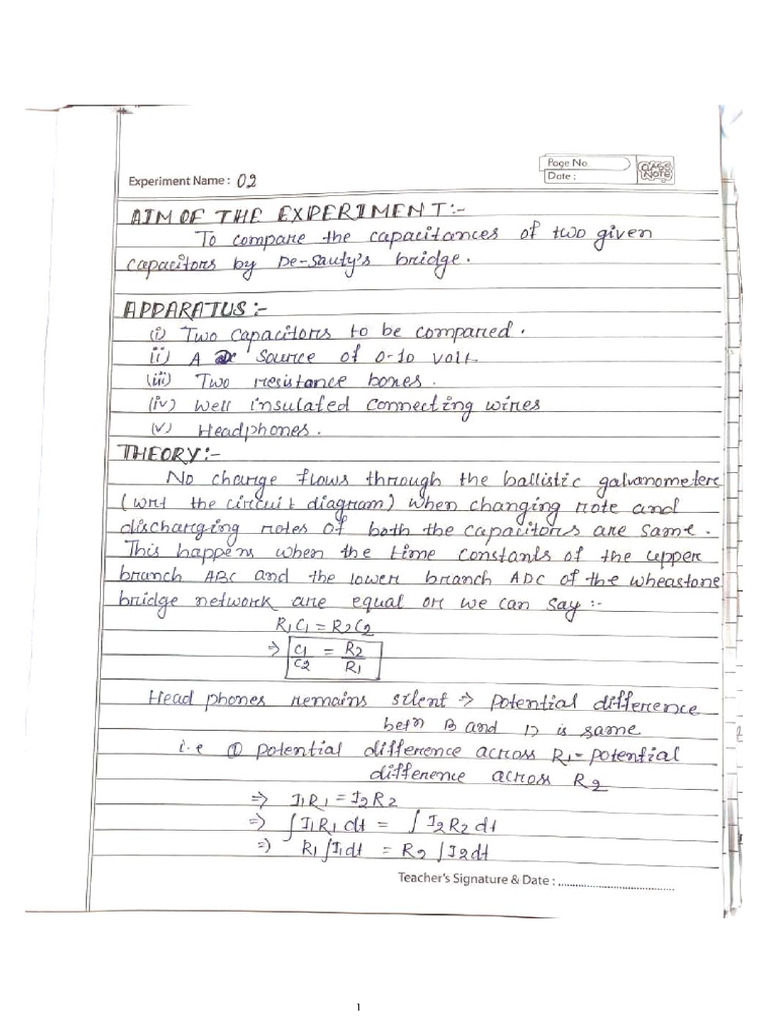 Page No.
CLASS NOTE
Experiment Name : 02
Date :
AIM OF THE EXPERIMENT:-
To compare the capacitances of two given
capacitors by De-Sauty's bridge.
APPARATUS:-
(i) Two capacitors to be compared.
ii) A source of 0-10 volt
(iii) Two resistance boxes.
(iv) Well insulated connecting wires
(v) Headphones.
THEORY:-
No charge flows through the ballistic galvanometer
(wrt the circuit diagram) when charging rote and
discharging rotes of both the capacitors are same.
This happens when the time constants of the upper
branch ABC and the lower branch ADC of the wheastone
bridge network are equal or we can say :-
R1C1 = R2C2
⇒ C1/C2 = R2/R1
Head phones remains silent → potential difference
betn B and D is same
i.e potential difference across R1 = potential
difference across R2
⇒ I1R1 = I2R2
⇒ ∫I1R1 dt = ∫I2R2 dt
⇒ R1∫I1dt = R2∫I2dt
Teacher's Signature & Date : ..............................
1